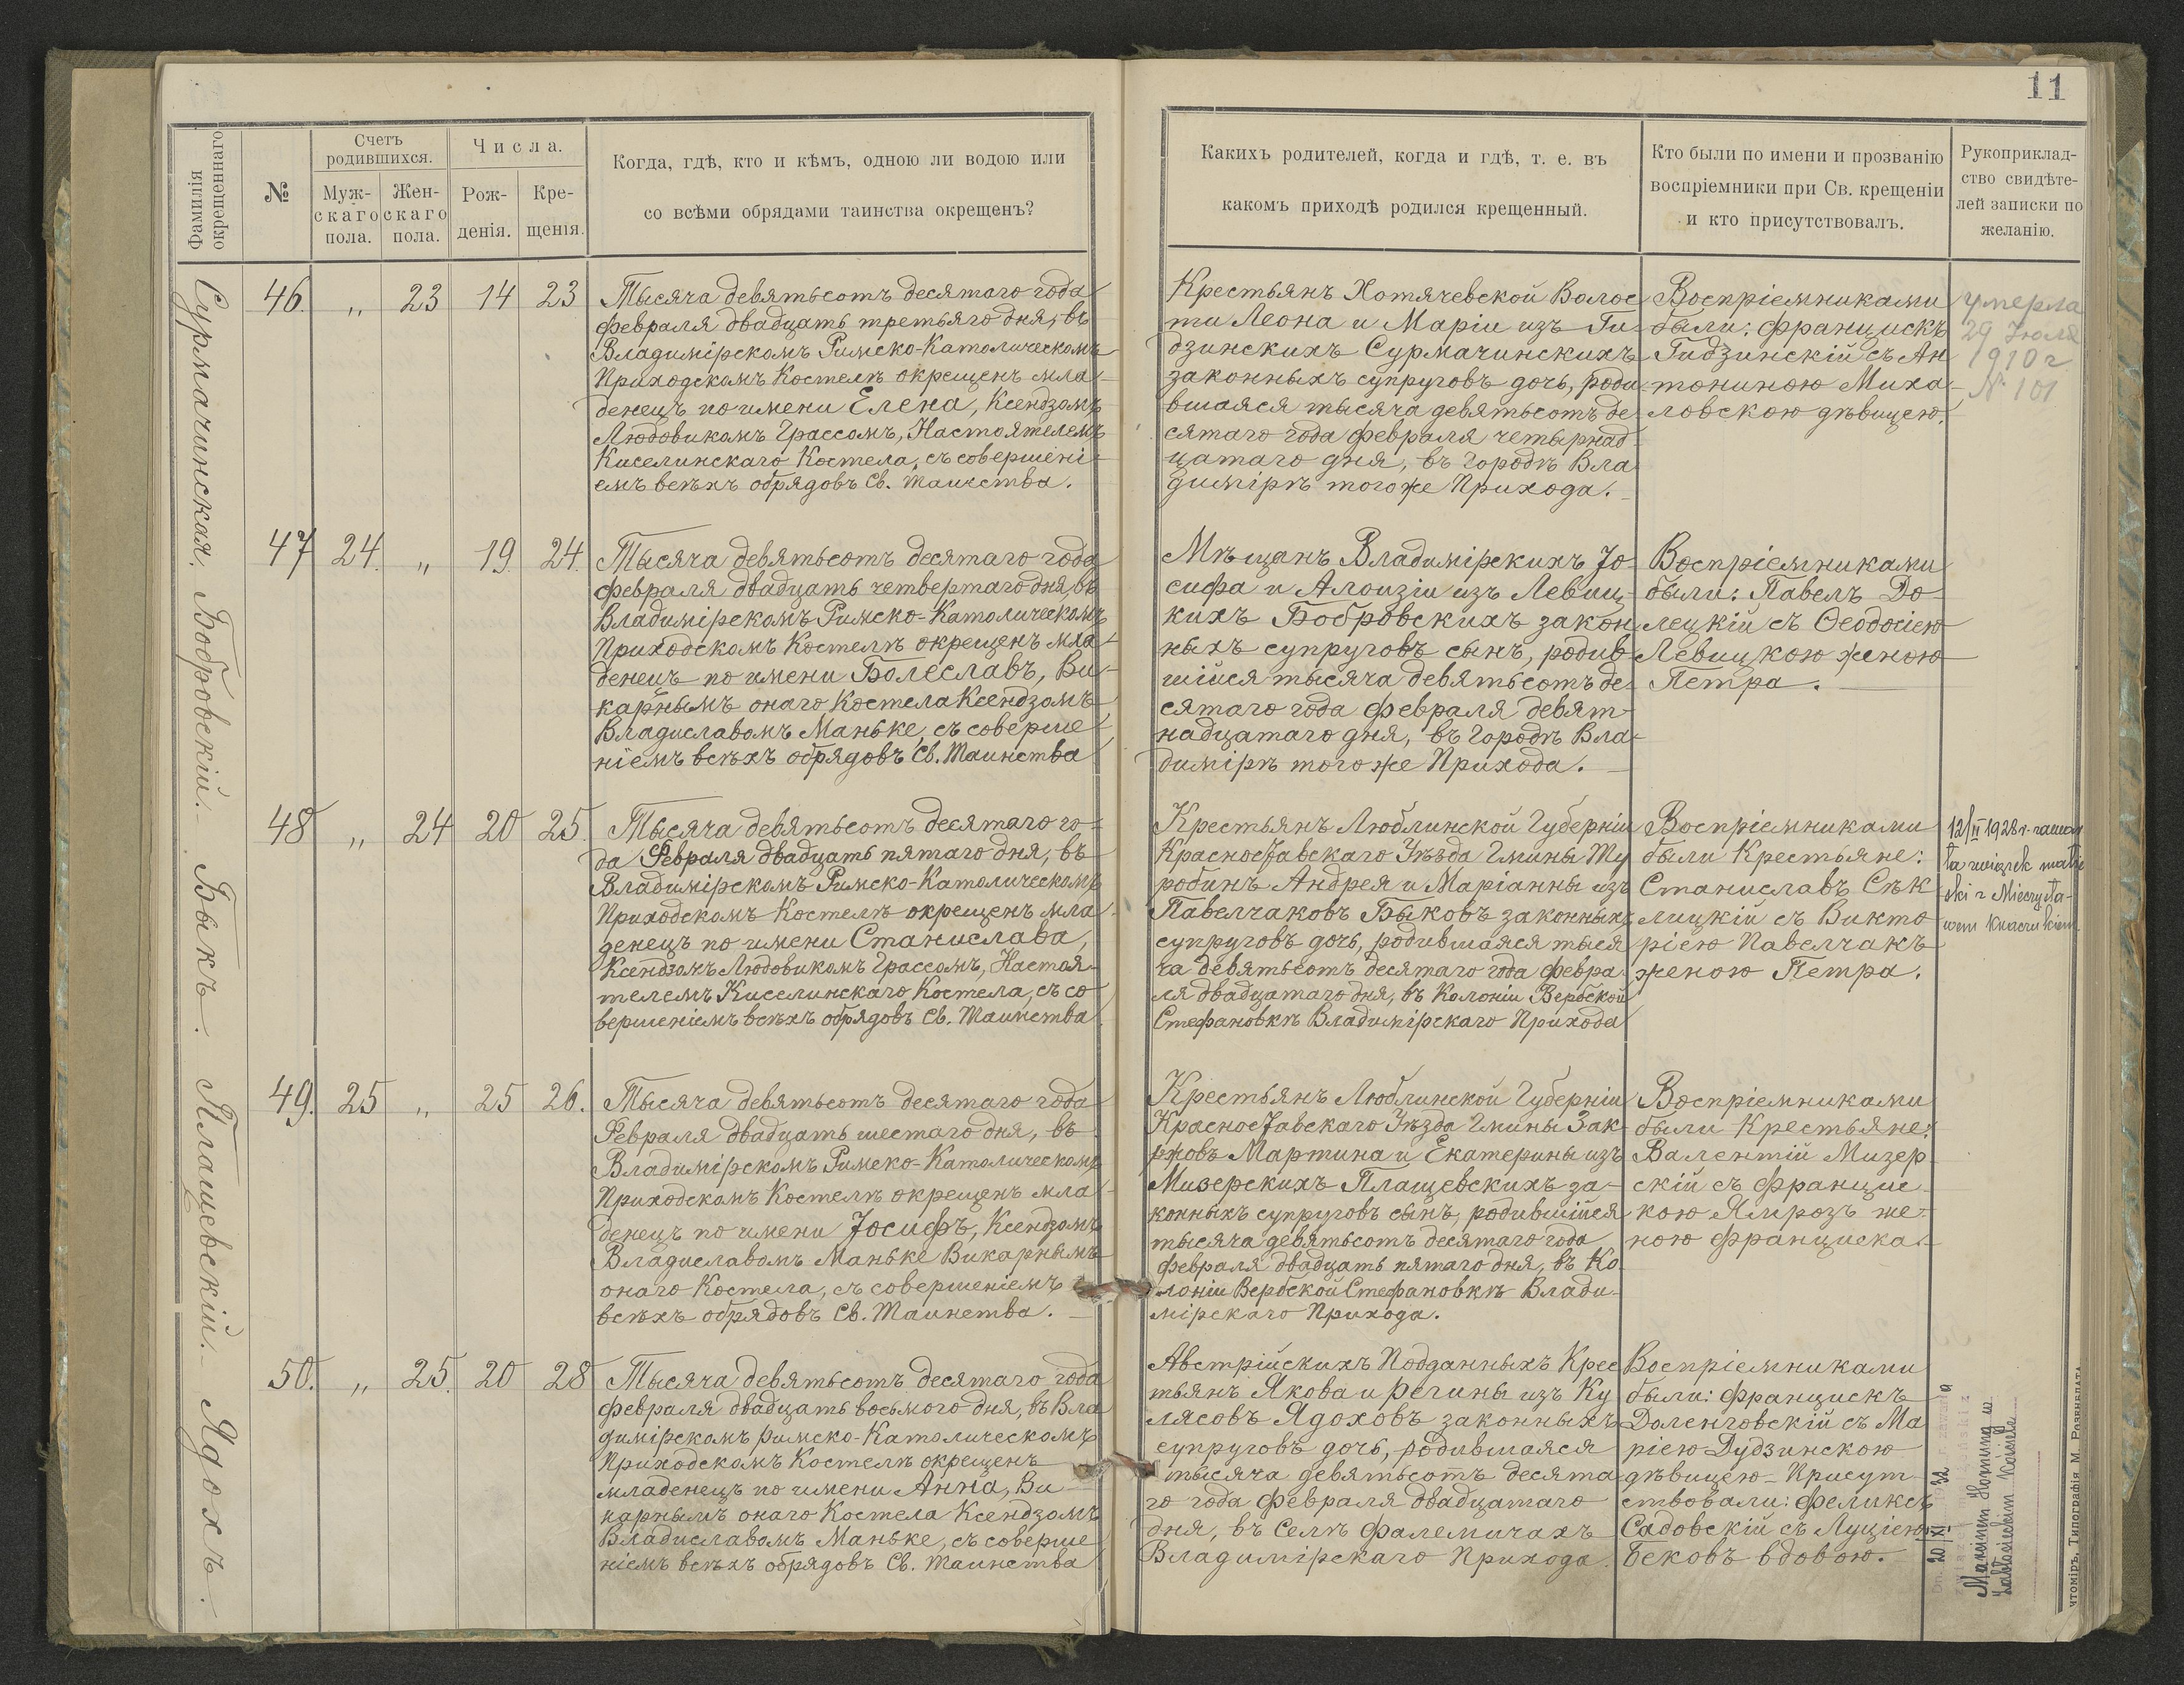 11
Фамилія
окрещеннаго
№
Счетъ
родившихся.
Муж-
скаго
пола.
Жен-
скаго
пола.
Числа.
Рож-
денія.
Кре-
щенія.
Когда, гдѣ, кто и кѣмъ, одною ли водою или
со всѣми обрядами таинства окрещенъ?
Какихъ родителей, когда и гдѣ, т. е. въ
какомъ приходѣ родился крещенный.
Кто были по имени и прозванію
воспріемники при Св. крещеніи
и кто присутствовалъ.
Рукоприклад-
ство свидѣте-
лей записки по
желанію.
Сурмачинская.
46. „ 23 14 23
Тысяча девятьсотъ десятаго года
февраля двадцать третьяго дня, въ
Владимірскомъ Римско-Католическомъ
Приходскомъ Костелѣ окрещенъ мла-
денецъ по имени Елена, Ксендзомъ
Людовикомъ Грассомъ, Настоятелемъ
Киселинскаго Костела, съ совершені-
емъ всѣхъ обрядовъ Св. Таинства.
Крестьянъ Хотячевской Волос
ти Леона и Маріи изъ Ги-
дзинскихъ Сурмачинскихъ
законныхъ супруговъ дочь, роди-
вшаяся тысяча девятьсотъ де
сятаго года февраля четырнад
цатаго дня, въ Городѣ Вла
димірѣ того же Прихода.
Воспріемниками
были: Францискъ
Гидзинскій съ Ан
тониною Миха
ловскою дѣвицею.
умерла
29 Іюля
1910 г
№ 101
Бобровскій.
47 24. „ 19. 24.
Тысяча девятьсотъ десятаго года
февраля двадцать четвертаго дня, въ
Владимірскомъ Римско-Католическомъ
Приходскомъ Костелѣ окрещенъ мла-
денецъ по имени Болеславъ, Ви-
карнымъ онаго Костела Ксендзомъ
Владиславомъ Маньке, съ соверше-
ніемъ всѣхъ обрядовъ Св. Таинства
Мѣщанъ Владимірскихъ Іо-
сифа и Алоизіи изъ Левиц-
кихъ Бобровскихъ закон
ныхъ супруговъ сынъ, родив
шійся тысяча девятьсотъ де
сятаго года февраля девят-
надцатаго дня, въ Городѣ Вла-
димірѣ того же Прихода.
Воспріемниками
были: Павелъ До-
лецкій съ Ѳеодосіею
Левицкою женою
Петра.
Быкъ.
48 „ 24 20 25
Тысяча девятьсотъ десятаго го-
да Февраля двадцать пятаго дня, въ
Владимірскомъ Римско-Католическомъ
Приходскомъ Костелѣ окрещенъ мла-
денецъ по имени Станислава,
Ксендзомъ Людовикомъ Грассомъ, Настоя-
телемъ Киселинскаго Костела, съ со
вершеніемъ всѣхъ обрядовъ Св. Таинства.
Крестьянъ Люблинской Губерніи
Красноставскаго Уѣзда Гмины Ту
робинъ Андрея и Маріанны изъ
Павелчаковъ Быковъ законныхъ
супруговъ дочь, родившаяся тыся
ча девятьсотъ десятаго года февра-
ля двадцатаго дня, въ Колоніи Вербской
Стефановкѣ Владимірскаго Прихода
Воспріемниками
были Крестьяне:
Станиславъ Сѣк
лицкій съ Викто
ріею Павелчакъ
женою Петра.
12/II 1928 r. zawar
ła związek małże
ski z Mieczysła-
wem
Плащевскій.
49. 25 „ 25 26.
Тысяча девятьсотъ десятаго года
Февраля двадцать шестаго дня, въ
Владимірскомъ Римско-Католическомъ
Приходскомъ Костелѣ окрещенъ мла-
денецъ по имени Іосифъ, Ксендзомъ
Владиславомъ Маньке Викарнымъ
онаго Костела, съ совершеніемъ
всѣхъ обрядовъ Св. Таинства.
Крестьянъ Люблинской Губерніи
Красноставскаго Уѣзда Гмины Зак-
ржовъ Мартина и Екатерины изъ
Мизерскихъ Плащевскихъ за-
конныхъ супруговъ сынъ, родившійся
тысяча девятьсотъ десятаго года
февраля двадцать пятаго дня, въ Ко
лоніи Вербской Стефановкѣ Влади-
мірскаго Прихода.
Воспріемниками
были Крестьяне:
Валентій Мизер
скій съ Францис
кою Ямрозъ же-
ною Франциска.
Ядохъ.
50. „ 25. 20 28
Тысяча девятьсотъ десятаго года
февраля двадцать восьмого дня, въ Вла
димірскомъ Римско-Католическомъ
Приходскомъ Костелѣ окрещенъ
младенецъ по имени Анна, Ви-
карнымъ онаго Костела Ксендзомъ
Владиславомъ Маньке, съ соверше
ніемъ всѣхъ обрядовъ Св. Таинства
Австрійскихъ Подданныхъ Крес
тьянъ Якова и Регины изъ Ку
лясовъ Ядоховъ законныхъ
супруговъ дочь, родившаяся
тысяча девятьсотъ десята
го года февраля двадцатаго
дня, въ Селѣ Фалемичахъ
Владимірскаго Прихода.
Воспріемниками
были: Францискъ
Доленговскій съ Ма
ріею Дудзинскою
дѣвицею. Присут
ствовали: Феликсъ
Садовскій съ Луціею
Бековъ вдовою.
Dn. 20/XI 32 r. zawarła
Marcinem Hornung w
kościele
Житоміръ, Типографія М. Розенблата